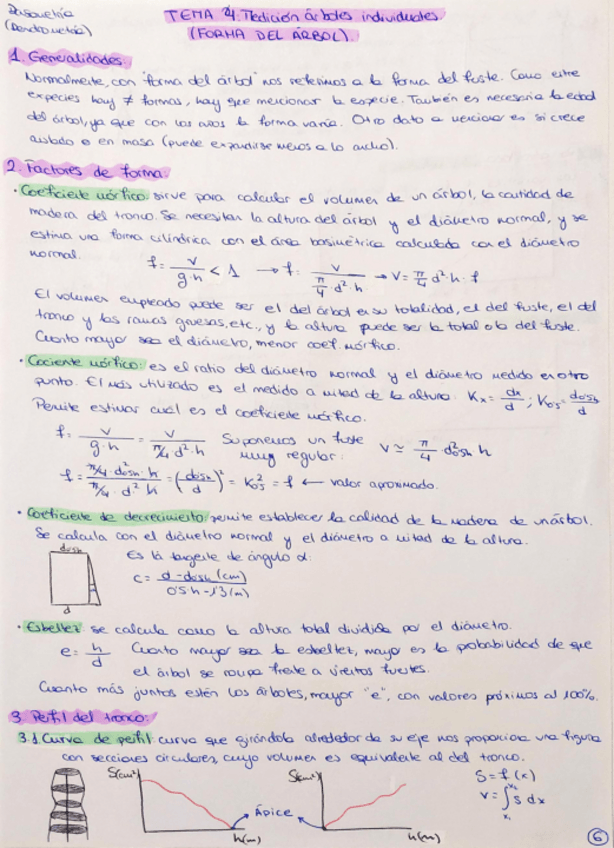 Dasometría
(Dendrometría)
TEMA 4. Medición árboles individuales
(FORMA DEL ÁRBOL).
1. Generalidades:
Normalmente, con "forma del árbol" nos referimos a la forma del fuste. Como entre
especies hay ≠ formas, hay que mencionar la especie. También es necesaria la edad
del árbol, ya que con los años la forma varía. Otro dato a mencionar es si crece
aislado o en masa (puede expandirse menos a lo ancho).
2. Factores de forma:
· Coeficiente mórfico: sirve para calcular el volumen de un árbol, la cantidad de
madera del tronco. Se necesitan la altura del árbol y el diámetro normal, y se
estima una forma cilíndrica con el área basimétrica calculada con el diámetro
normal.
f = v / g·h < 1 → f = v / (π/4 d²·h) → v = π/4 d²·h·f
El volumen empleado puede ser el del árbol en su totalidad, el del fuste, el del
tronco y las ramas gruesas, etc., y la altura puede ser la total o la del fuste.
Cuanto mayor sea el diámetro, menor coef. mórfico.
· Cociente mórfico: es el ratio del diámetro normal y el diámetro medido en otro
punto. El más utilizado es el medido a mitad de la altura: Kx = dx/d ; K0'5 = d0'5h/d
Permite estimar cuál es el coeficiente mórfico.
f = v / g·h = v / (π/4·d²·h) Suponemos un fuste muy regular: v ≃ π/4 · d²0'5h · h
f = (π/4·d²0'5h·h) / (π/4·d²·h) = (d0'5h / d)² = K²0'5 = f ← valor aproximado.
· Coeficiente de decrecimiento: permite establecer la calidad de la madera de un árbol.
Se calcula con el diámetro normal y el diámetro a mitad de la altura.
d0'5h
Es la tangente de ángulo α:
c = d - d0'5h (cm) / 0'5h - 1'3 (m)
d
· Esbeltez: se calcula como la altura total dividida por el diámetro.
e = h/d Cuanto mayor sea la esbeltez, mayor es la probabilidad de que
el árbol se rompa frente a vientos fuertes.
Cuanto más juntos estén los árboles, mayor "e", con valores próximos al 100%.
3. Perfil del tronco:
3.1. Curva de perfil: curva que girándola alrededor de su eje nos proporciona una figura
con secciones circulares, cuyo volumen es equivalente al del tronco.
S(cm²)
h(m)
Ápice
S(cm²)
h(m)
S = f(x)
v = ∫ˣ²ₓ₁ S dx
6